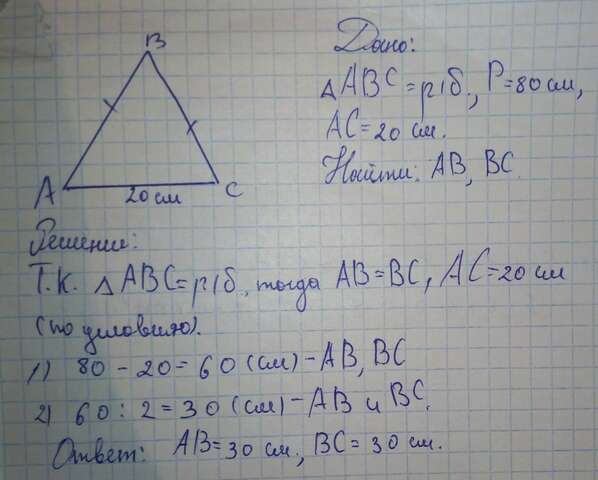 B
A
C
20 см
Дано:
△ABC = р/б, P=80 см,
AC=20 см.
Найти: AB, BC.
Решение:
Т.К. △ABC=р/б, тогда AB=BC, AC=20 см
(по условию).
1) 80 - 20 = 60 (см) - AB, BC
2) 60 : 2 = 30 (см) - AB и BC.
Ответ: AB=30 см, BC=30 см.